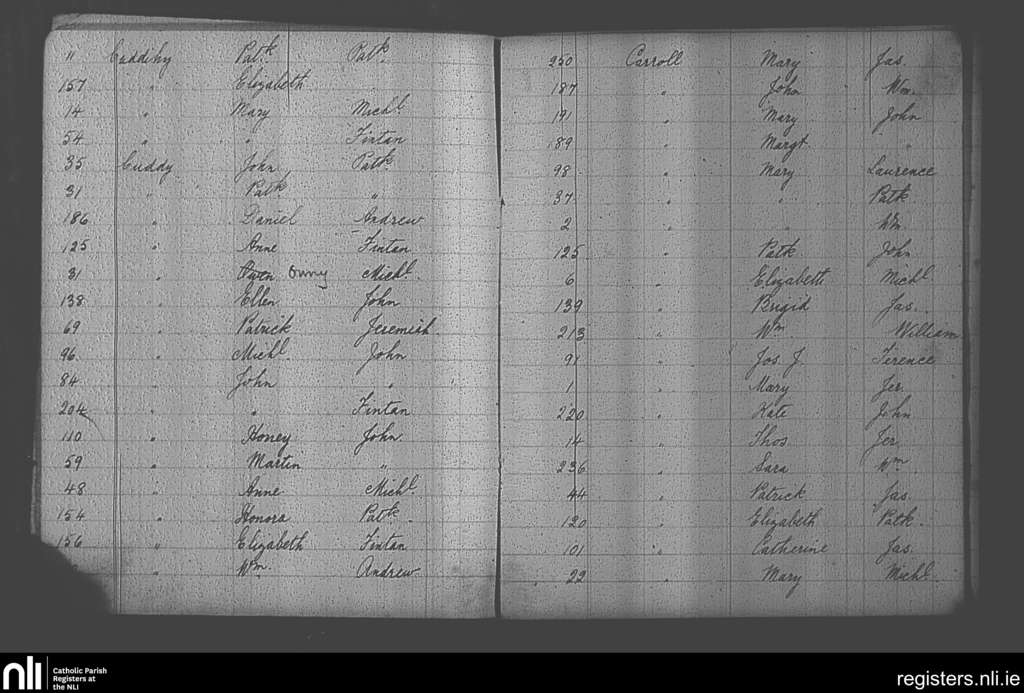 11 Cuddihy Patk. Patk.
157 " Elizabeth "
14 " Mary Michl.
54 " " Fintan
35 Cuddy John Patk.
31 " Patk. "
186 " Daniel Andrew
125 " Anne Fintan
31 " Owen Owny Michl.
138 " Ellen John
69 " Patrick Jeremiah
96 " Michl. John
84 " John "
204 " " Fintan
110 " Honey John
59 " Martin "
48 " Anne Michl.
154 " Honora Patk.
156 " Elizabeth Fintan
" Wm. Andrew
250 Carroll Mary Jas.
187 " John Wm.
191 " Mary John
189 " Margt. "
98 " Mary Laurence
37 " " Patk.
2 " " Wm
125 " Patk. John
6 " Elizabeth Michl
139 " Brigid Jas.
213 " Wm William
91 " Jos. J. Terence
1 " Mary Jer.
220 " Kate John
14 " Thos Jer.
236 " Sara Wm
44 " Patrick Jas.
120 " Elizabeth Patk.
101 " Catherine Jas.
22 " Mary Michl.
nli
Catholic Parish
Registers at
the NLI
registers.nli.ie